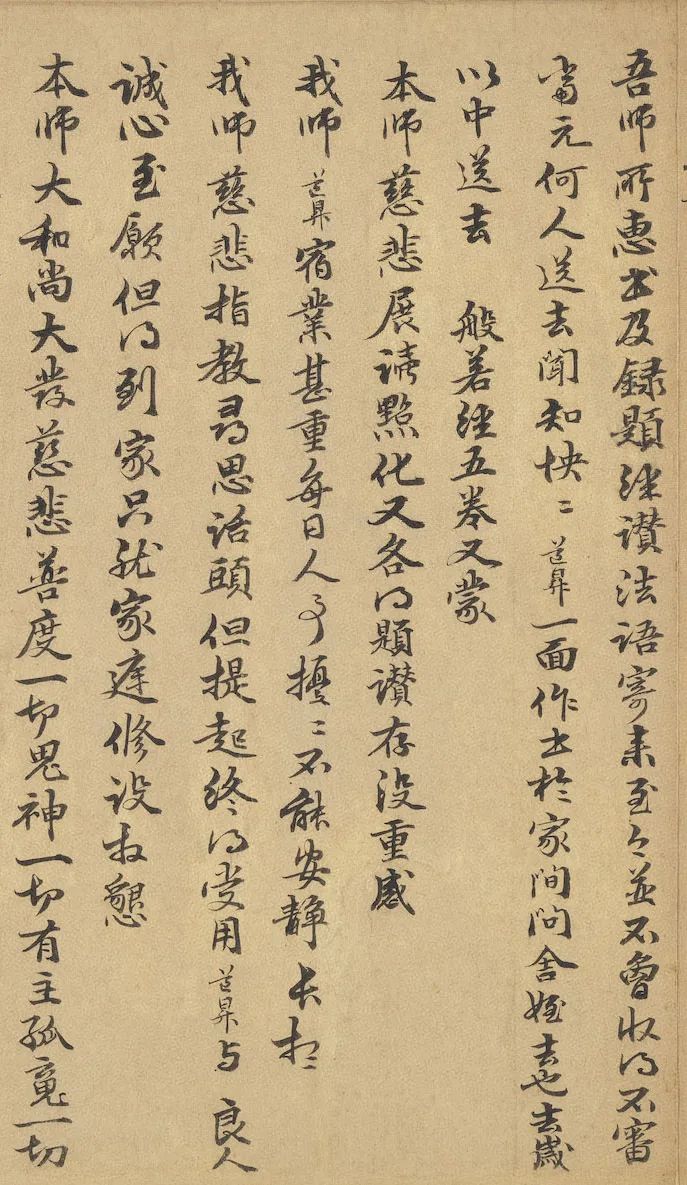 吾师所惠书及録题经讃法语寄来至今並不曾收得不審
当元何人送去闻知怏〻道昇一面作书於家间问舍姪去也去歲
以中送去 般若经五卷又蒙
本师慈悲展读点化又各得题讃存没重感
我师道昇宿業甚重每日人事擾〻不能安静长想
我师慈悲指教寻思话头但提起终得受用道昇与 良人
誠心至願但得到家只就家庭修设拜懇
本师大和尚大发慈悲普度一切鬼神一切有主孤魂一切